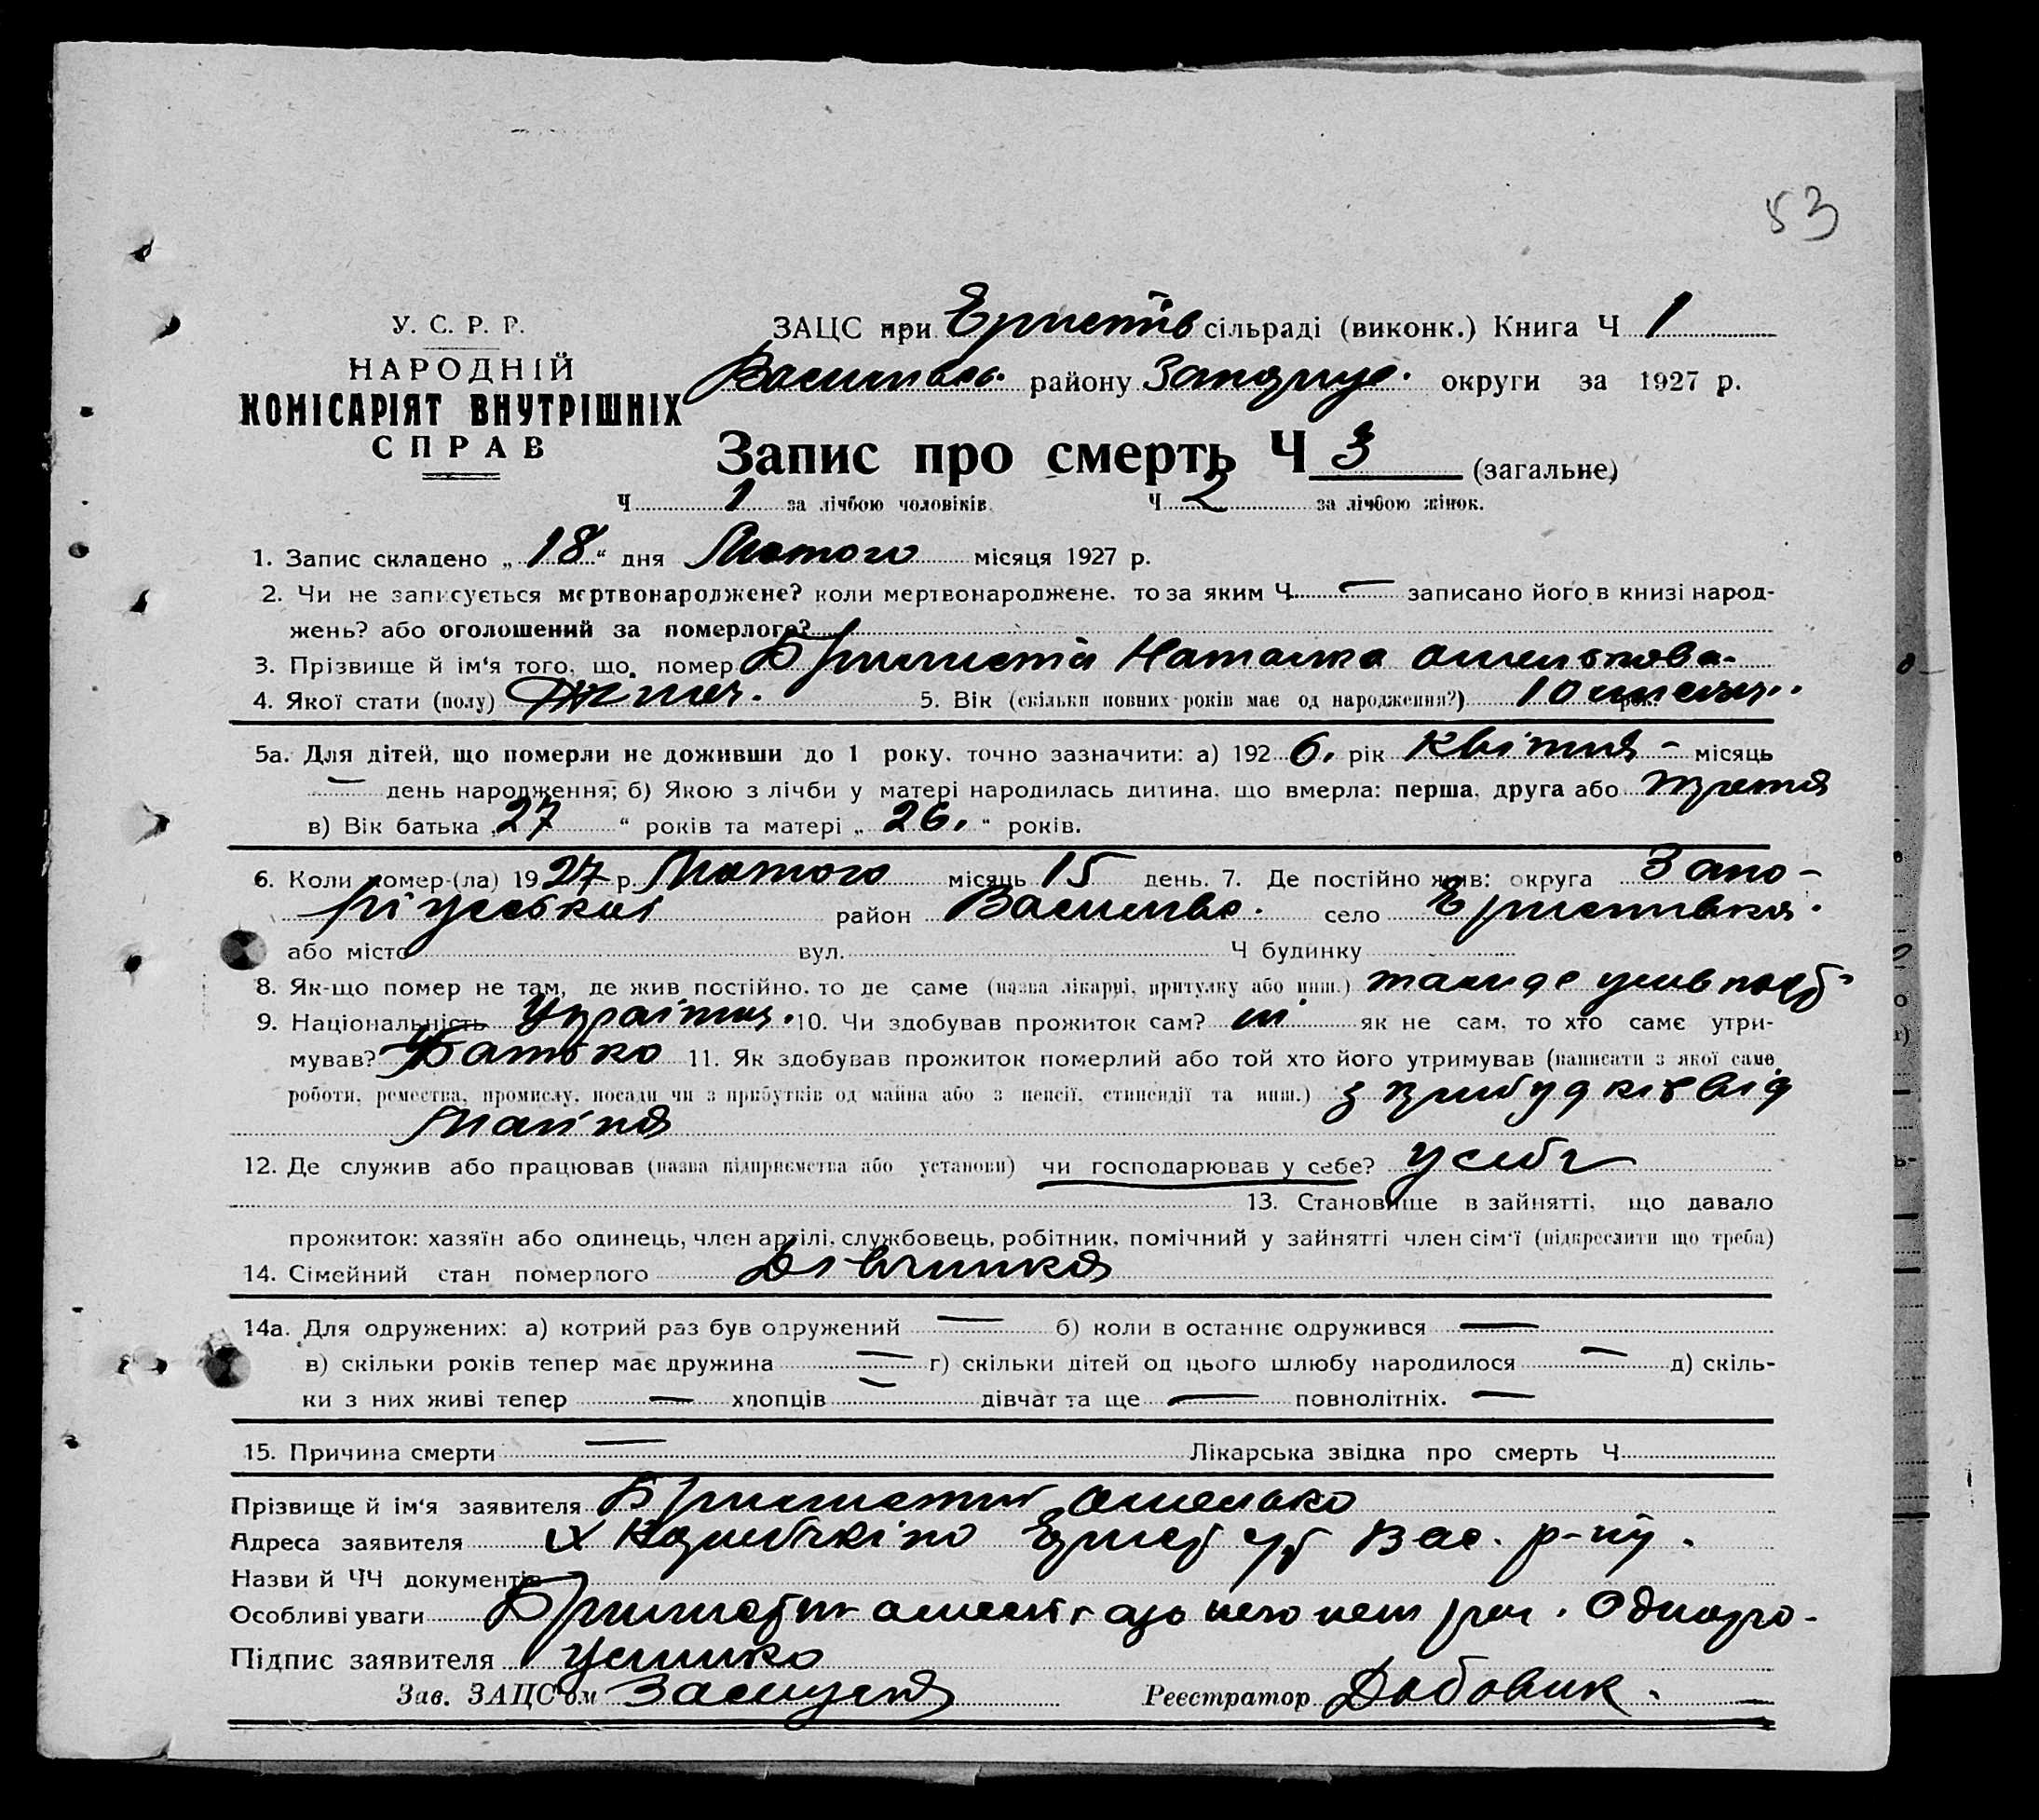 53
У. С. Р. Р.
НАРОДНІЙ
КОМІСАРІЯТ ВНУТРІШНІХ
СПРАВ
ЗАЦС при Еристів сільраді (виконк.) Книга Ч 1
Васильвс. району Запоріж. округи за 1927 р.
Запис про смерть Ч 3 (загальне)
Ч 1 за лічбою чоловіків Ч 2 за лічбою жінок.
1. Запис складено „ 18 “ дня Лютого місяця 1927 р.
2. Чи не записується мертвонароджене? коли мертвонароджене, то за яким Ч — записано його в книзі народ-
жень? або оголошений за померлого?
3. Прізвище й ім‘я того, що помер Наталка
4. Якої статі (полу) Жіноч. 5. Вік (скільки повних років має од народження?) 10 місяц. рок.
5а. Для дітей, що померли не доживши до 1 року, точно зазначити: а) 192 6. рік Квітня – місяць
— день народження; б) Якою з лічби у матері народилась дитина, що вмерла: перша, друга або третя
в) Вік батька „ 27 “ років та матері „ 26. “ років.
6. Коли помер-(ла) 19 27 р. Лютого місяць 15 день. 7. Де постійно жив: округа Запо-
ріжської район Васильвс. село Еристівка.
або місто вул. Ч будинку
8. Як-що помер не там, де жив постійно, то де саме (назва лікарні, притулку або инш.) там де жив
9. Національність Україн. 10. Чи здобував прожиток сам? ні як не сам, то хто саме утри-
мував? Батько 11. Як здобував прожиток померлий або той хто його утримував (написати з якої саме
роботи, ремества, промислу, посади чи з прибутків од майна або з пенсії, стипендії та инш.) з прибудків від
Майна
12. Де служив або працював (назва підприємства або установи) чи господарював у себе? у себе
13. Становище в зайнятті, що давало
прожиток: хазяїн або одинець, член артілі, службовець, робітник, помічний у зайнятті член сім‘ї (підкреслити що треба)
14. Сімейний стан померлого Дівчинка
14а. Для одружених: а) котрий раз був одружений — б) коли в останнє одружився —
в) скільки років тепер має дружина — г) скільки дітей од цього шлюбу народилося — д) скіль-
ки з них живі тепер — хлопців — дівчат та ще — повнолітніх. —
15. Причина смерти — Лікарська звідка про смерть Ч
Прізвище й ім‘я заявителя Омелько
Адреса заявителя Вас. р-ну.
Назви й ЧЧ документів
Особливі уваги
Підпис заявителя
Зав. ЗАЦС‘ом Реєстратор Дубовик.